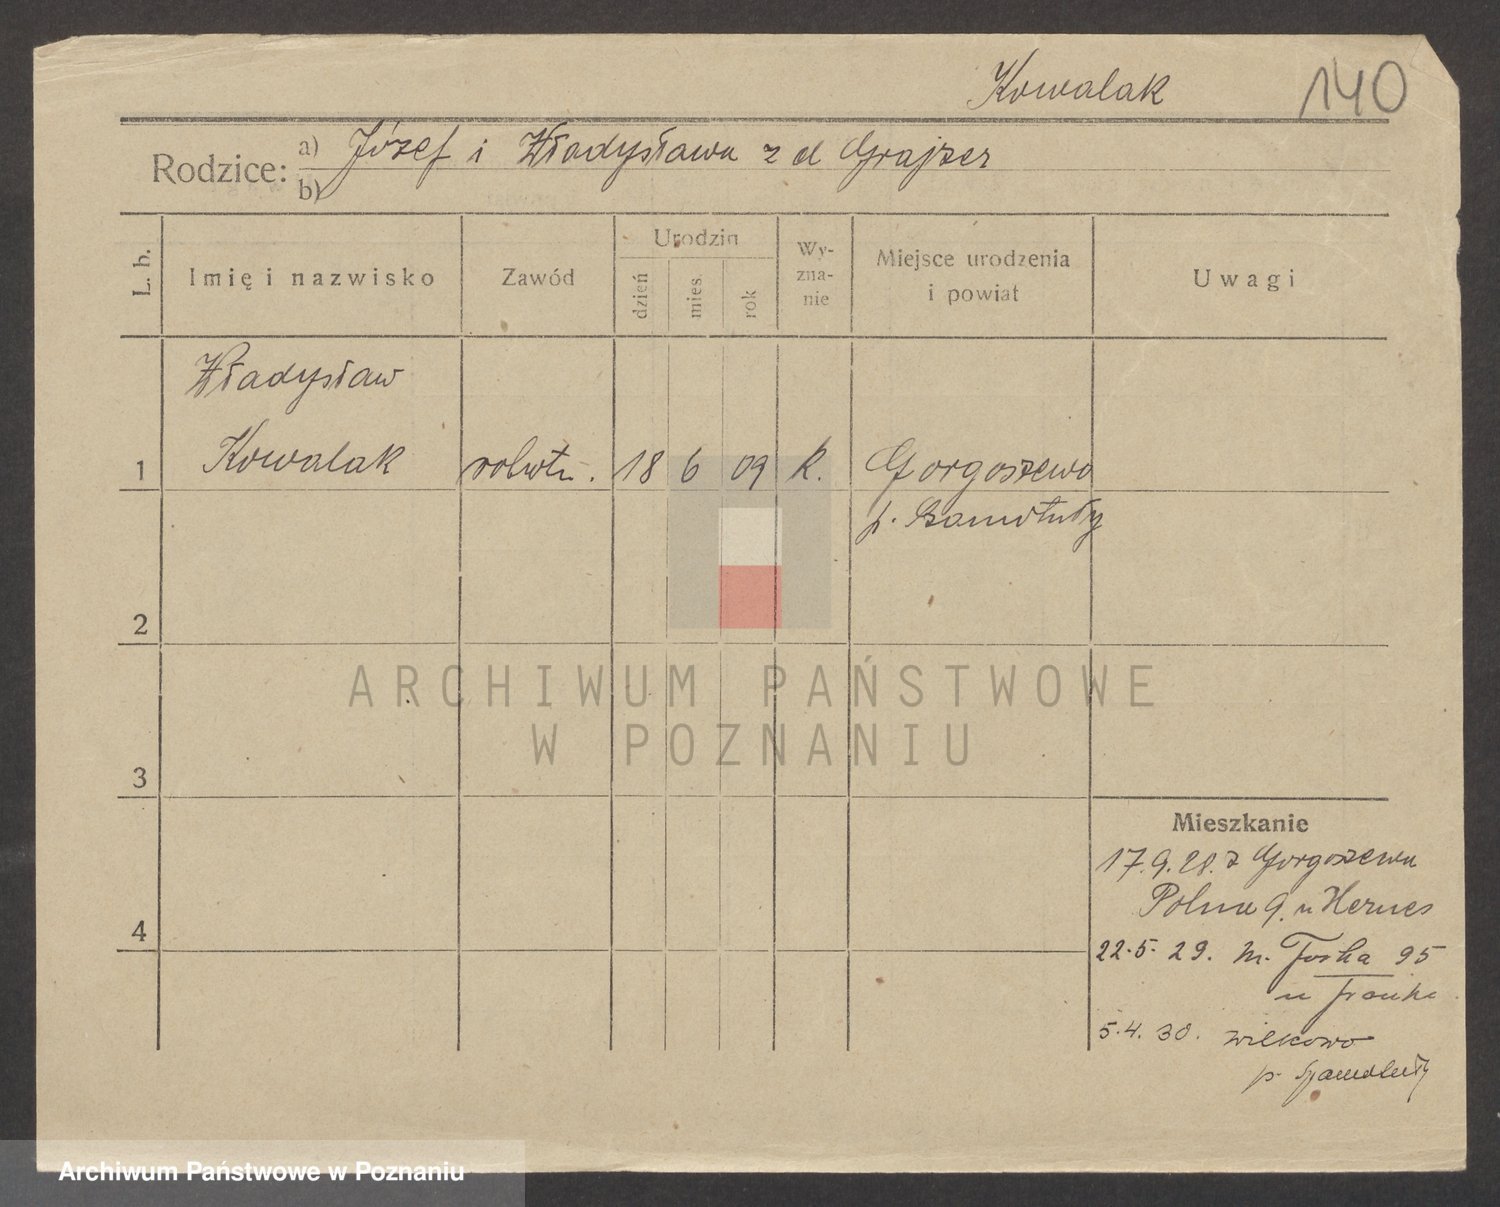 Kowalak 140
Rodzice: a) Józef i Władysława z d Grajzer
b)
L. b. Imię i nazwisko Zawód Urodzin dzień mies. rok Wy-zna-nie Miejsce urodzenia i powiat Uwagi
Władysław
1 Kowalak robotn. 18 6 09 k. Gorgoszewo
p. Szamotuły
2
ARCHIWUM PAŃSTWOWE
W POZNANIU
3
Mieszkanie
17.9.28. z Gorgoszewa
4 Polna 9. u Hermes
22.5.29. m. Focha 95
u Franke
5.4.30. Wilkowo
p. Szamotuły
Archiwum Państwowe w Poznaniu